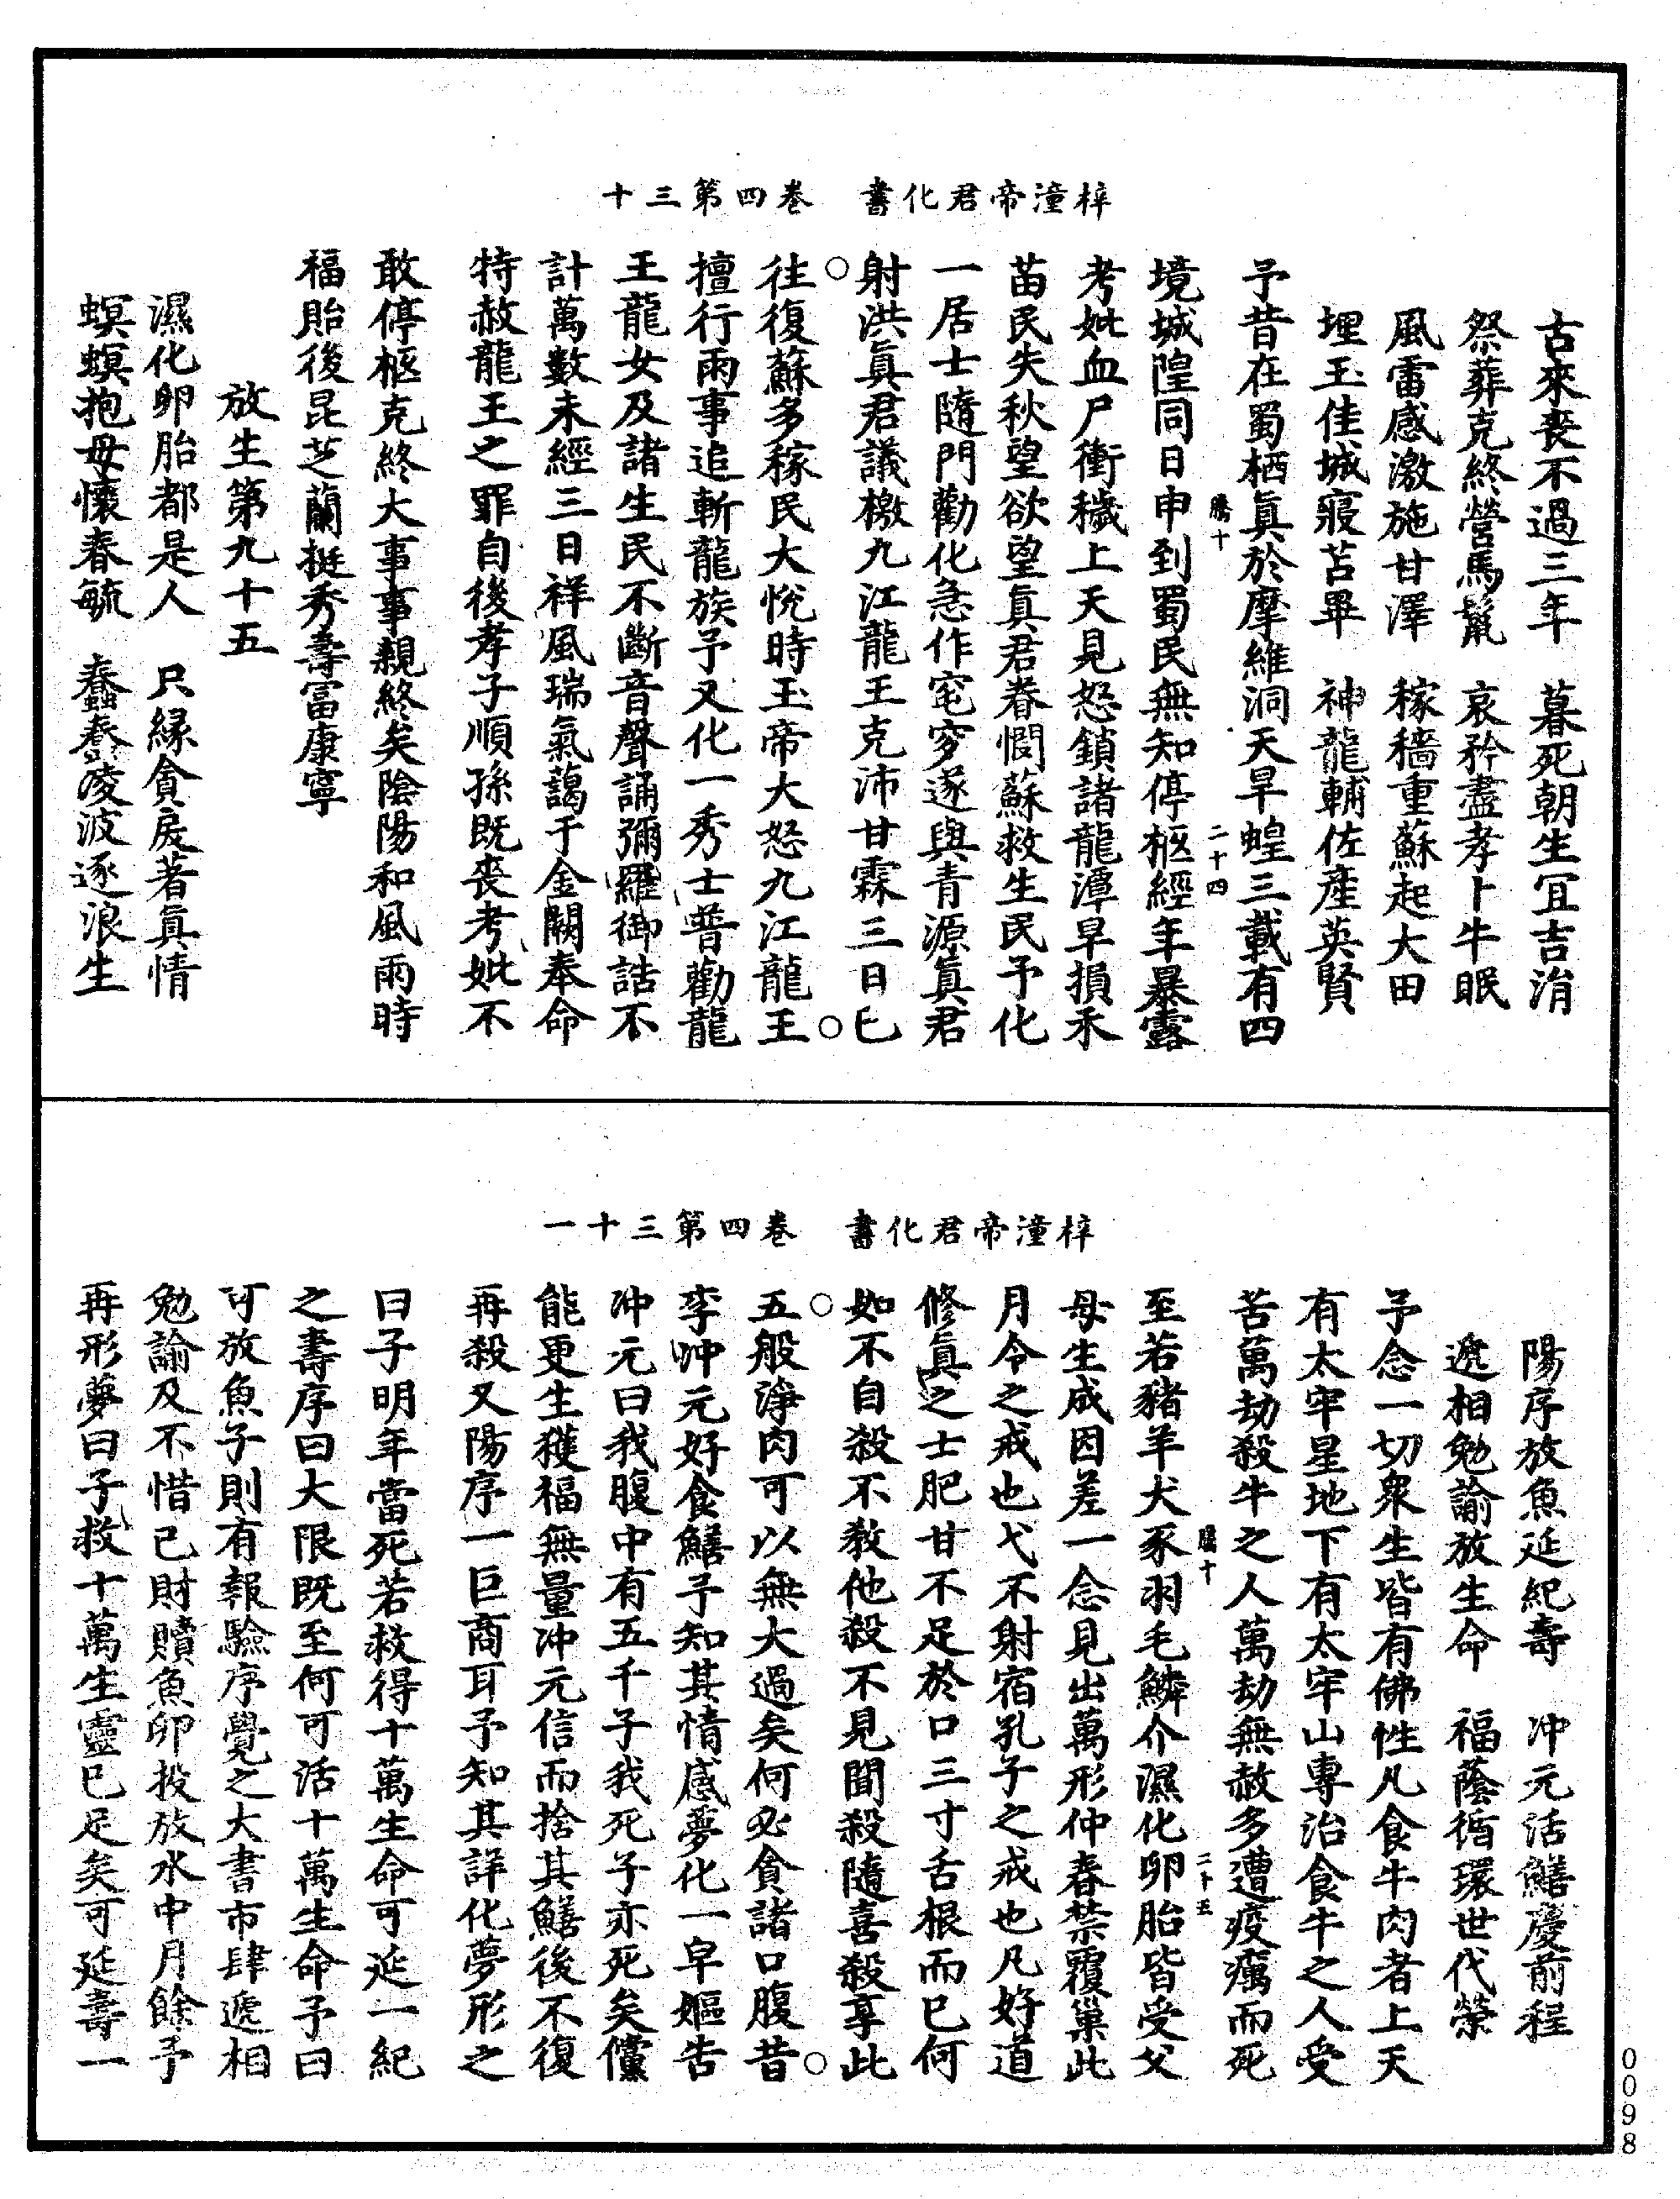 梓潼帝君化書　卷四第三十
古來喪不過三年　暮死朝生冝吉涓
祭葬克終營馬鬛　哀矜盡孝卜牛眠
風雷感激施甘澤　稼穡重蘇起大田
埋玉佳城寢苫畢　神龍輔佐產英賢
予昔在蜀栖真於摩維洞天旱蝗三載有四
騰十　二十四
境城隍同日申到蜀民無知停柩經年暴露
考妣血尸衝穢上天見怒鎖諸龍潭旱損禾
苗民失秋望欲望真君眷憫蘇救生民予化
一居士隨門勸化急作窀穸遂與青源真君
射洪真君議檄九江龍王克沛甘霖三日已
往復蘇多稼民大悅時玉帝大怒九江龍王
擅行雨事追斬龍族予又化一秀士普勸龍
王龍女及諸生民不斷音聲誦彌羅御誥不
計萬數未經三日祥風瑞氣藹于金闕奉命
特赦龍王之罪自後孝子順孫既喪考妣不
敢停柩克終大事事親終矣陰陽和風雨時
福貽後昆芝蘭挺秀壽富康寧
放生第九十五
濕化卵胎都是人　只緣貪戾著真情
螟螟抱母懷春毓　蠢蠢凌波逐浪生
梓潼帝君化書　卷四第三十一
陽序放魚延紀壽　冲元活鱔慶前程
遞相勉諭放生命　福蔭循環世代榮
予念一切衆生皆有佛性凡食牛肉者上天
有太牢星地下有太牢山專治食牛之人受
苦萬劫殺牛之人萬劫無赦多遭疫癘而死
騰十　二十五
至若豬羊犬豕羽毛鱗介濕化卵胎皆受父
母生成因差一念見出萬形仲春禁覆巢此
月令之戒也弋不射宿孔子之戒也凡好道
修真之士肥甘不足於口三寸舌根而已何
如不自殺不教他殺不見聞殺隨喜殺享此
五般淨肉可以無大過矣何必貪諸口腹昔
李冲元好食鱔予知其情感夢化一皁嫗告
冲元曰我腹中有五千子我死子亦死矣儻
能更生獲福無量冲元信而捨其鱔後不復
再殺又陽序一巨商耳予知其詳化夢形之
曰子明年當死若救得十萬生命可延一紀
之壽序曰大限既至何可活十萬生命予曰
可放魚子則有報驗序覺之大書市肆遞相
勉諭及不惜己財贖魚卵投放水中月餘予
再形夢曰子救十萬生靈已足矣可延壽一
0098